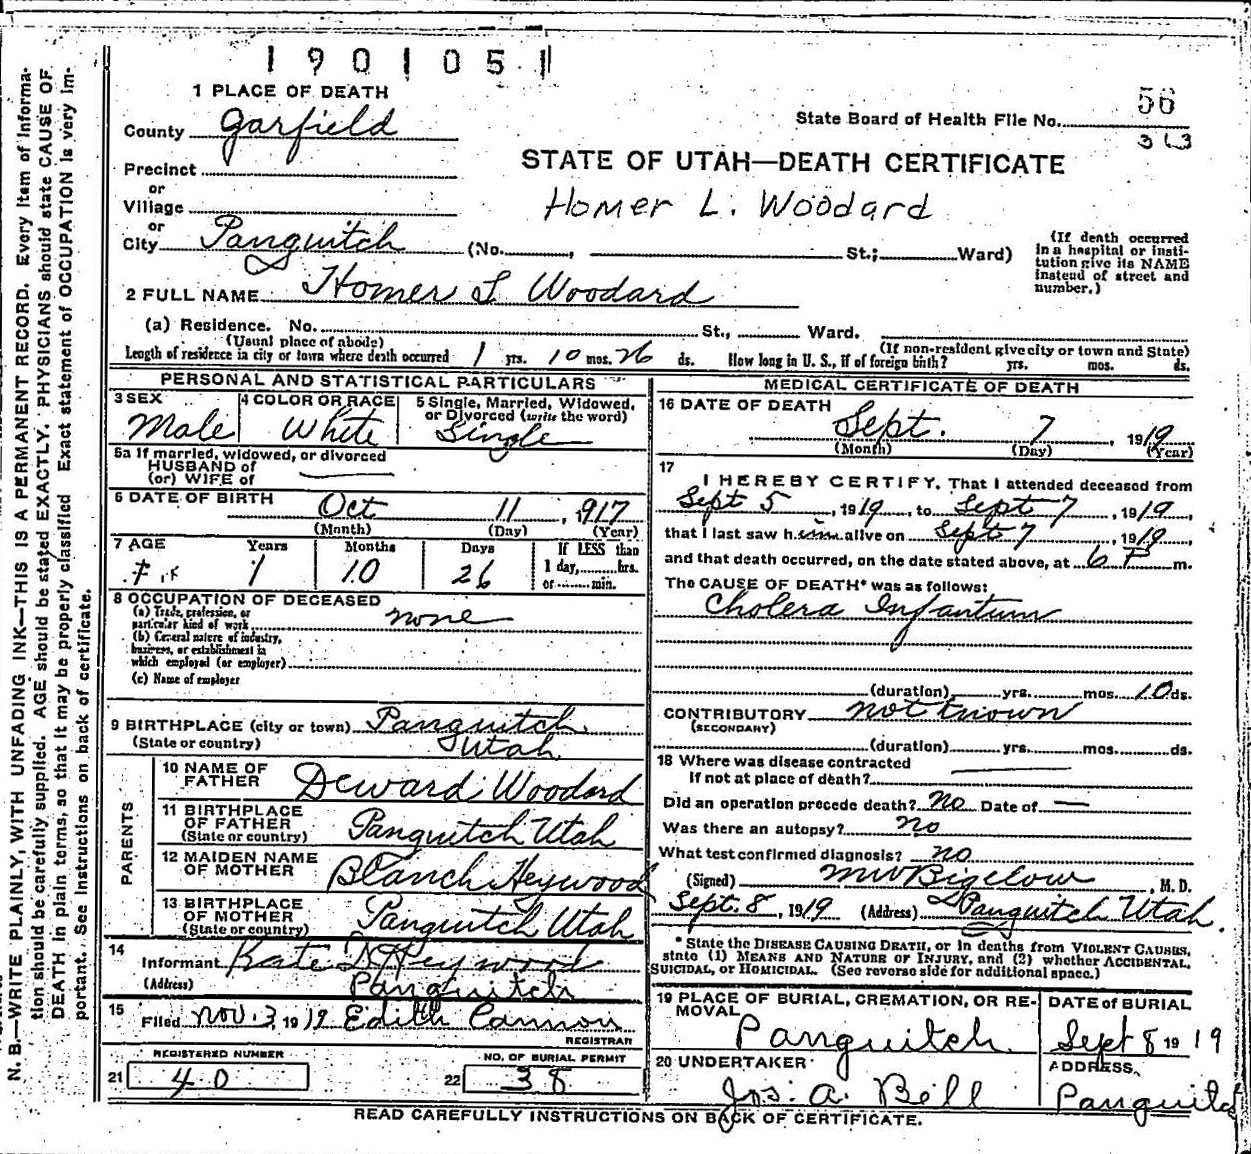 1901051
1 PLACE OF DEATH
County Garfield
State Board of Health File No. 56
313
Precinct
or
Village
or
STATE OF UTAH—DEATH CERTIFICATE
Homer L. Woodard
City Panguitch (No. , St.; Ward)
(If death occurred in a hospital or institution give its NAME instead of street and number.)
2 FULL NAME Homer L Woodard
(a) Residence. No. St., Ward.
(Usual place of abode) (If non-resident give city or town and State)
Length of residence in city or town where death occurred 1 yrs. 10 mos. 26 ds. How long in U. S., if of foreign birth? yrs. mos. ds.
PERSONAL AND STATISTICAL PARTICULARS
3 SEX 4 COLOR OR RACE 5 Single, Married, Widowed, or Divorced (write the word)
Male White Single
5a If married, widowed, or divorced
HUSBAND of
(or) WIFE of
6 DATE OF BIRTH Oct 11, 1917
(Month) (Day) (Year)
7 AGE Years Months Days If LESS than
1 10 26 1 day, hrs.
or min.
8 OCCUPATION OF DECEASED
(a) Trade, profession, or
particular kind of work none
(b) General nature of industry,
business, or establishment in
which employed (or employer)
(c) Name of employer
9 BIRTHPLACE (city or town) Panguitch
(State or country) Utah
PARENTS
10 NAME OF FATHER Deward Woodard
11 BIRTHPLACE OF FATHER (State or country) Panguitch Utah
12 MAIDEN NAME OF MOTHER Blanch Heywood
13 BIRTHPLACE OF MOTHER (State or country) Panguitch Utah
14 Informant Kate D Heywood
(Address) Panguitch
15 Filed Nov. 3, 1919 Edith Cannon
REGISTRAR
REGISTERED NUMBER NO. OF BURIAL PERMIT
21 40 22 38
MEDICAL CERTIFICATE OF DEATH
16 DATE OF DEATH Sept. 7, 1919
(Month) (Day) (Year)
17
I HEREBY CERTIFY, That I attended deceased from
Sept 5, 1919, to Sept 7, 1919,
that I last saw him alive on Sept 7, 1919,
and that death occurred, on the date stated above, at 6 P m.
The CAUSE OF DEATH* was as follows:
Cholera Infantum
(duration) yrs. mos. 10 ds.
CONTRIBUTORY not known
(SECONDARY)
(duration) yrs. mos. ds.
18 Where was disease contracted
If not at place of death?
Did an operation precede death? No Date of —
Was there an autopsy? no
What test confirmed diagnosis? no
(Signed) M W Bigelow, M. D.
Sept. 8, 1919 (Address) Panguitch Utah.
* State the DISEASE CAUSING DEATH, or in deaths from VIOLENT CAUSES,
state (1) MEANS AND NATURE OF INJURY, and (2) whether ACCIDENTAL,
SUICIDAL, or HOMICIDAL. (See reverse side for additional space.)
19 PLACE OF BURIAL, CREMATION, OR REMOVAL DATE of BURIAL
Panguitch Sept 8 1919
20 UNDERTAKER ADDRESS
Jos. A. Bell Panguitch
READ CAREFULLY INSTRUCTIONS ON BACK OF CERTIFICATE.
N. B.—WRITE PLAINLY, WITH UNFADING INK—THIS IS A PERMANENT RECORD. Every item of Informa-
tion should be carefully supplied. AGE should be stated EXACTLY. PHYSICIANS should state CAUSE OF
DEATH in plain terms, so that it may be properly classified. Exact statement of OCCUPATION is very im-
portant. See instructions on back of certificate.